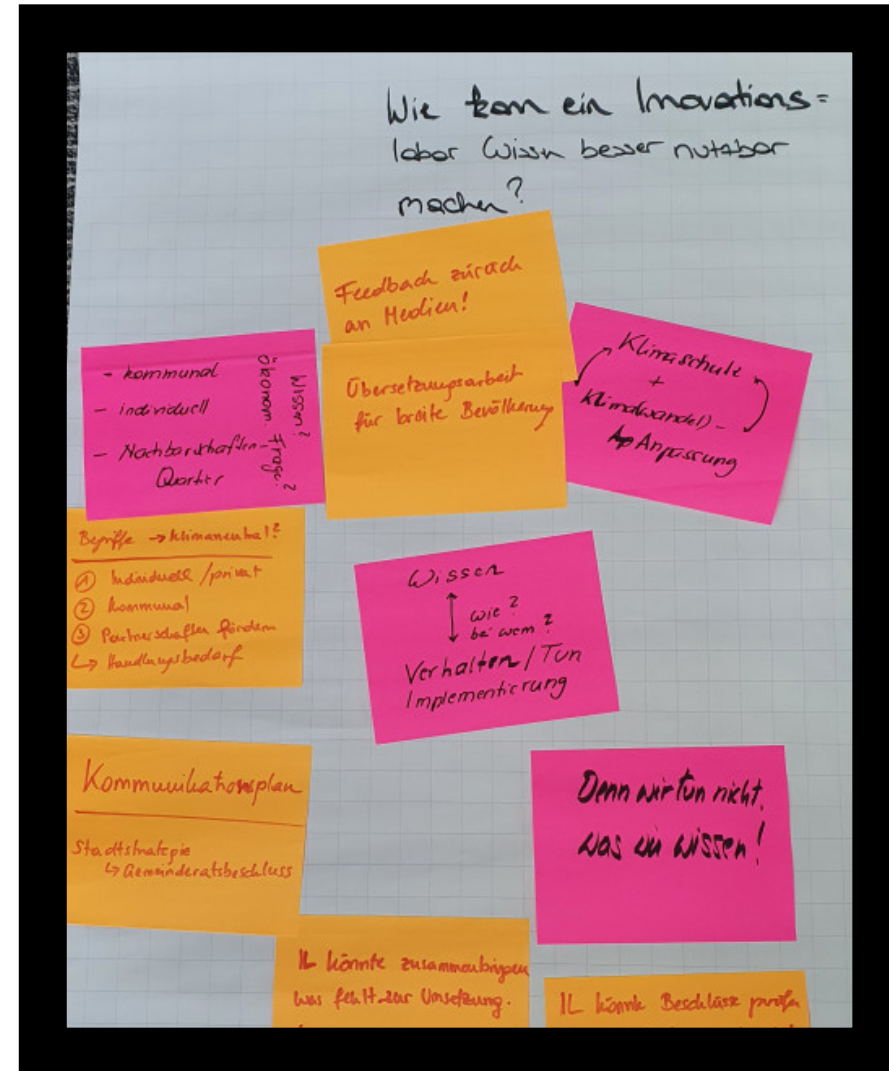 Wie kann ein Inovations=
labor Wissn besser nutzbar
machen?
Feedback zurück
an Medien!
Übersetzungsarbeit
für breite Bevölkerung
- kommunal
- individuell
- Nachbarschaften-
Quartier
Wissen?
ökonom. Frage?
Klimaschutz
+
Klimawandel-
Anpassung
Begriffe → klimaneutral?
① Individuell / privat
② Kommunal
③ Partnerschaften fördern
↳ Handlungsbedarf
Wissen
↕ wie?
bei wem?
Verhalten / Tun
Implementierung
Kommunikationsplan
Stadtstrategie
↳ Gemeinderatsbeschluss
Denn wir tun nicht,
was wir wissen!
IL könnte zusammenbringen
was fehlt zur Umsetzung.
IL könnte Beschlüsse prüfen